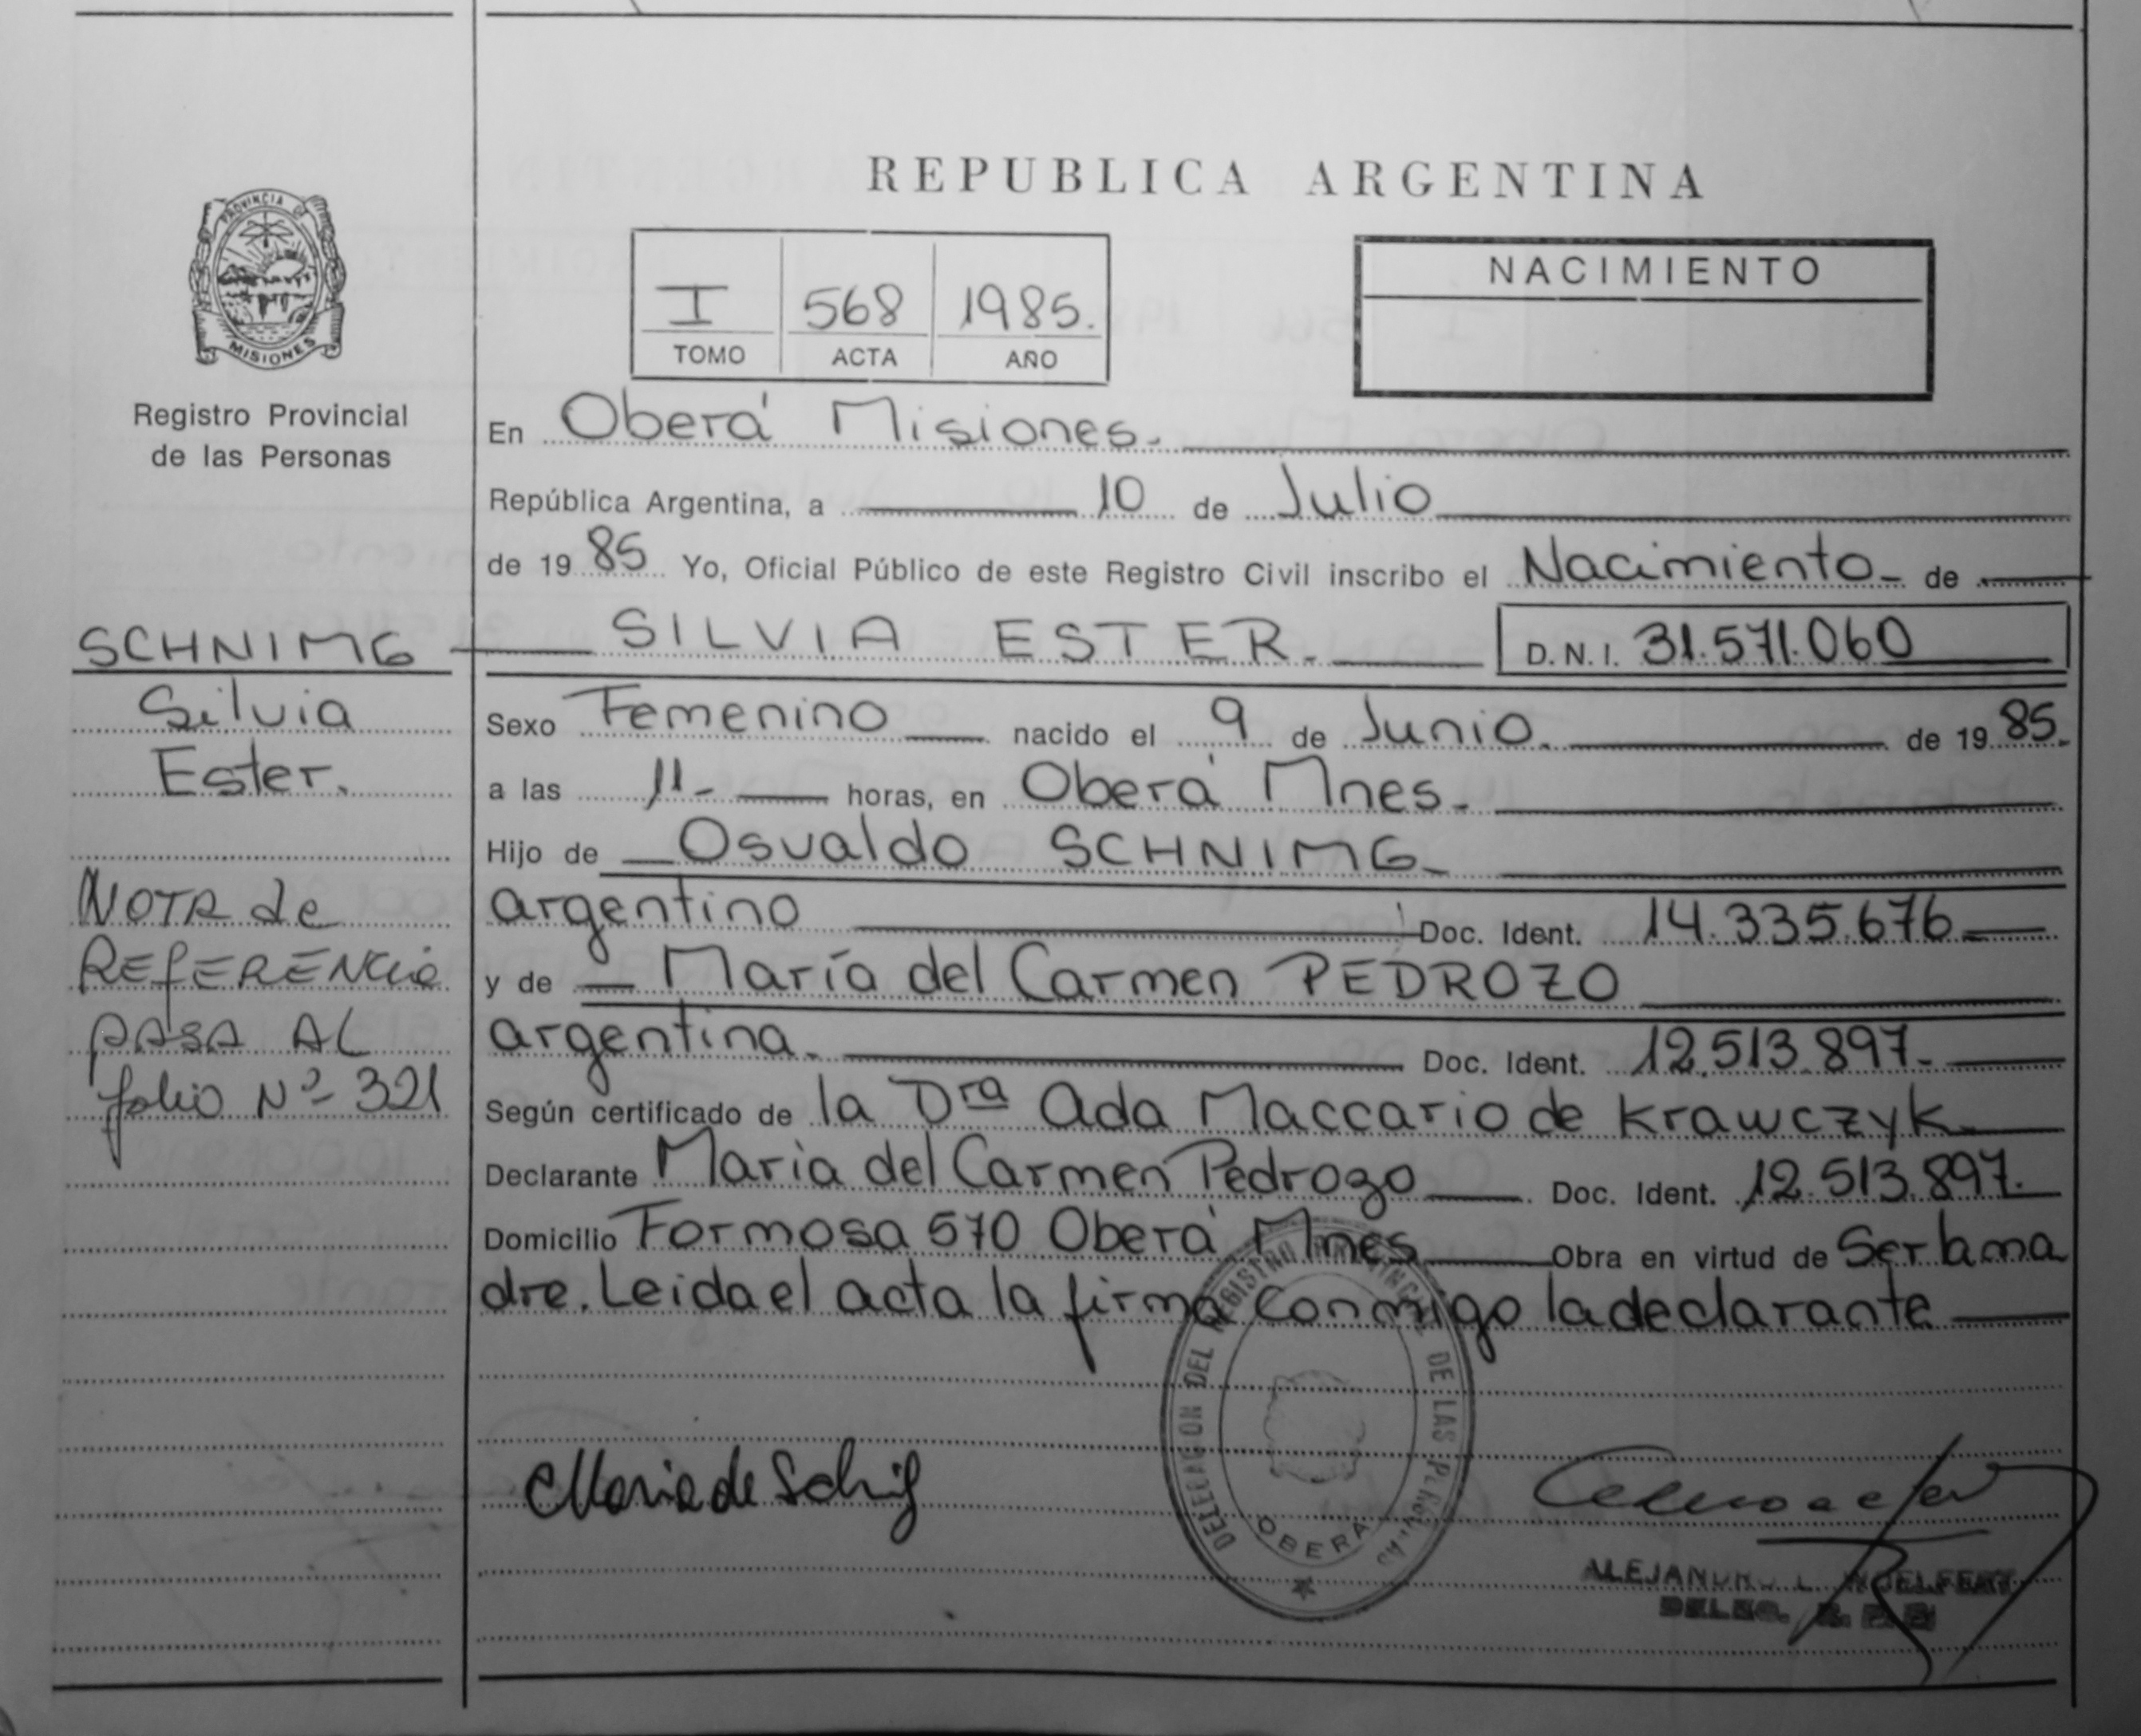 REPUBLICA ARGENTINA
PROVINCIA DE
MISIONES
Registro Provincial
de las Personas
I 568 1985.
TOMO ACTA AÑO
NACIMIENTO
En Oberá Misiones.
República Argentina, a 10 de Julio
de 19 85 Yo, Oficial Público de este Registro Civil inscribo el Nacimiento de
SCHNIMG SILVIA ESTER. D.N.I. 31.571.060
Silvia
Ester.
Sexo Femenino nacido el 9 de Junio. de 19 85.
a las 11- horas, en Oberá Mnes.
Hijo de Osvaldo SCHNIMG
argentino Doc. Ident. 14.335.676
y de María del Carmen PEDROZO
argentina. Doc. Ident. 12.513.897.
NOTA de
REFERENCIA
PASA AL
folio Nº 321
Según certificado de la Dra Ada Maccario de Krawczyk
Declarante María del Carmen Pedrozo Doc. Ident. 12.513.897.
Domicilio Formosa 570 Oberá Mnes Obra en virtud de Ser la ma
dre. Leida el acta la firma conmigo la declarante
DELEGACION DEL REGISTRO PROVINCIAL DE LAS PERSONAS
OBERA
Maria de
ALEJANDRO L.
DELEG.